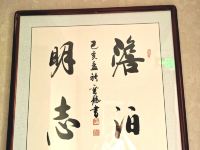 澹泊
明志
己亥孟秋書